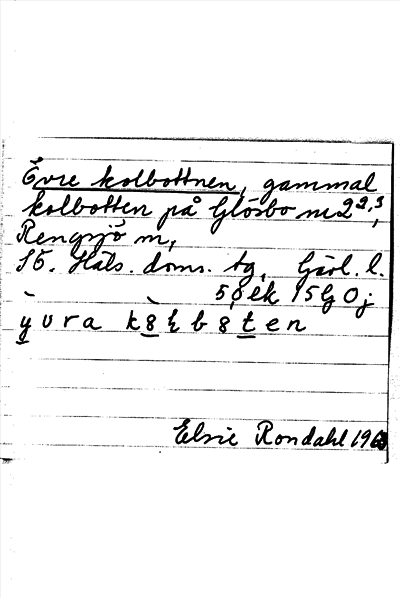 Évre kolbottnen, gammal
kolbotten på Glösbo nr 2 2,3,
Rengsjö sn,
Sö. Häls. doms. tg, Gävl. l.
5,8 ek 15G 0j
yvra k8lb8ten
Elsie Rondahl 1963